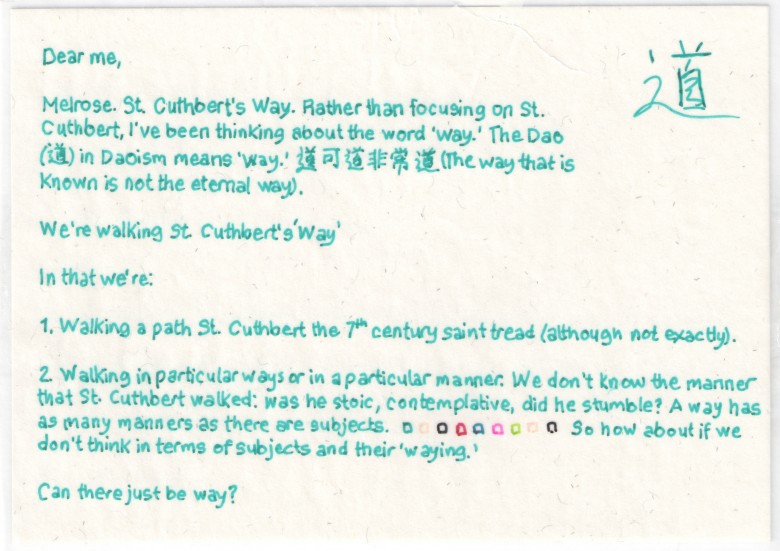 Dear me,
道
Melrose. St. Cuthbert's Way. Rather than focusing on St.
Cuthbert, I've been thinking about the word 'way.' The Dao
(道) in Daoism means 'way.' 道可道非常道 (The way that is
known is not the eternal way).
We're walking St. Cuthbert's 'Way'
In that we're:
1. Walking a path St. Cuthbert the 7th century saint tread (although not exactly).
2. Walking in particular ways or in a particular manner. We don't know the manner
that St. Cuthbert walked: was he stoic, contemplative, did he stumble? A way has
as many manners as there are subjects. So how about if we
don't think in terms of subjects and their 'waying.'
Can there just be way?